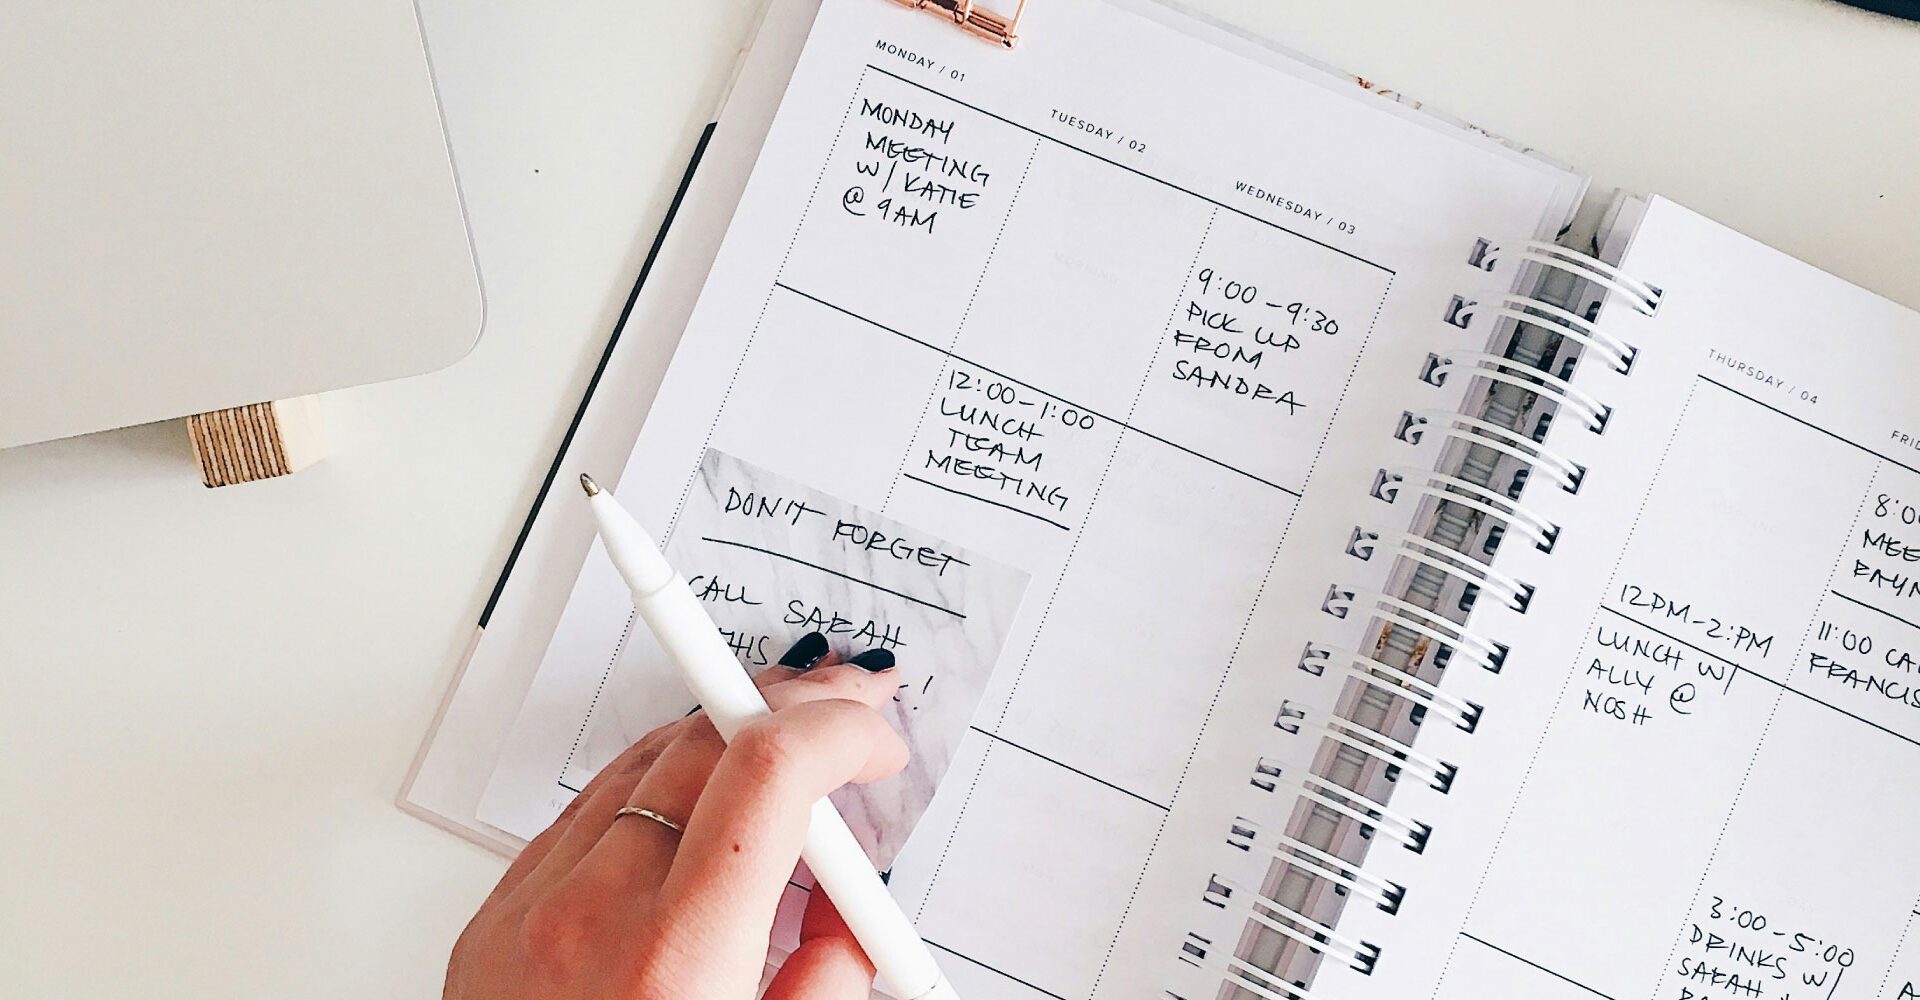 MONDAY / 01
MONDAY
MEETING
W/ KATIE
@ 9AM
TUESDAY / 02
12:00-1:00
LUNCH
TEAM
MEETING
WEDNESDAY / 03
9:00-9:30
PICK UP
FROM
SANDRA
DON'T FORGET
CALL SARAH
THIS
!
THURSDAY / 04
12PM-2:PM
LUNCH W/
ALLY @
NOSH
3:00-5:00
DRINKS W/
SARAH
11:00
FRANCIS